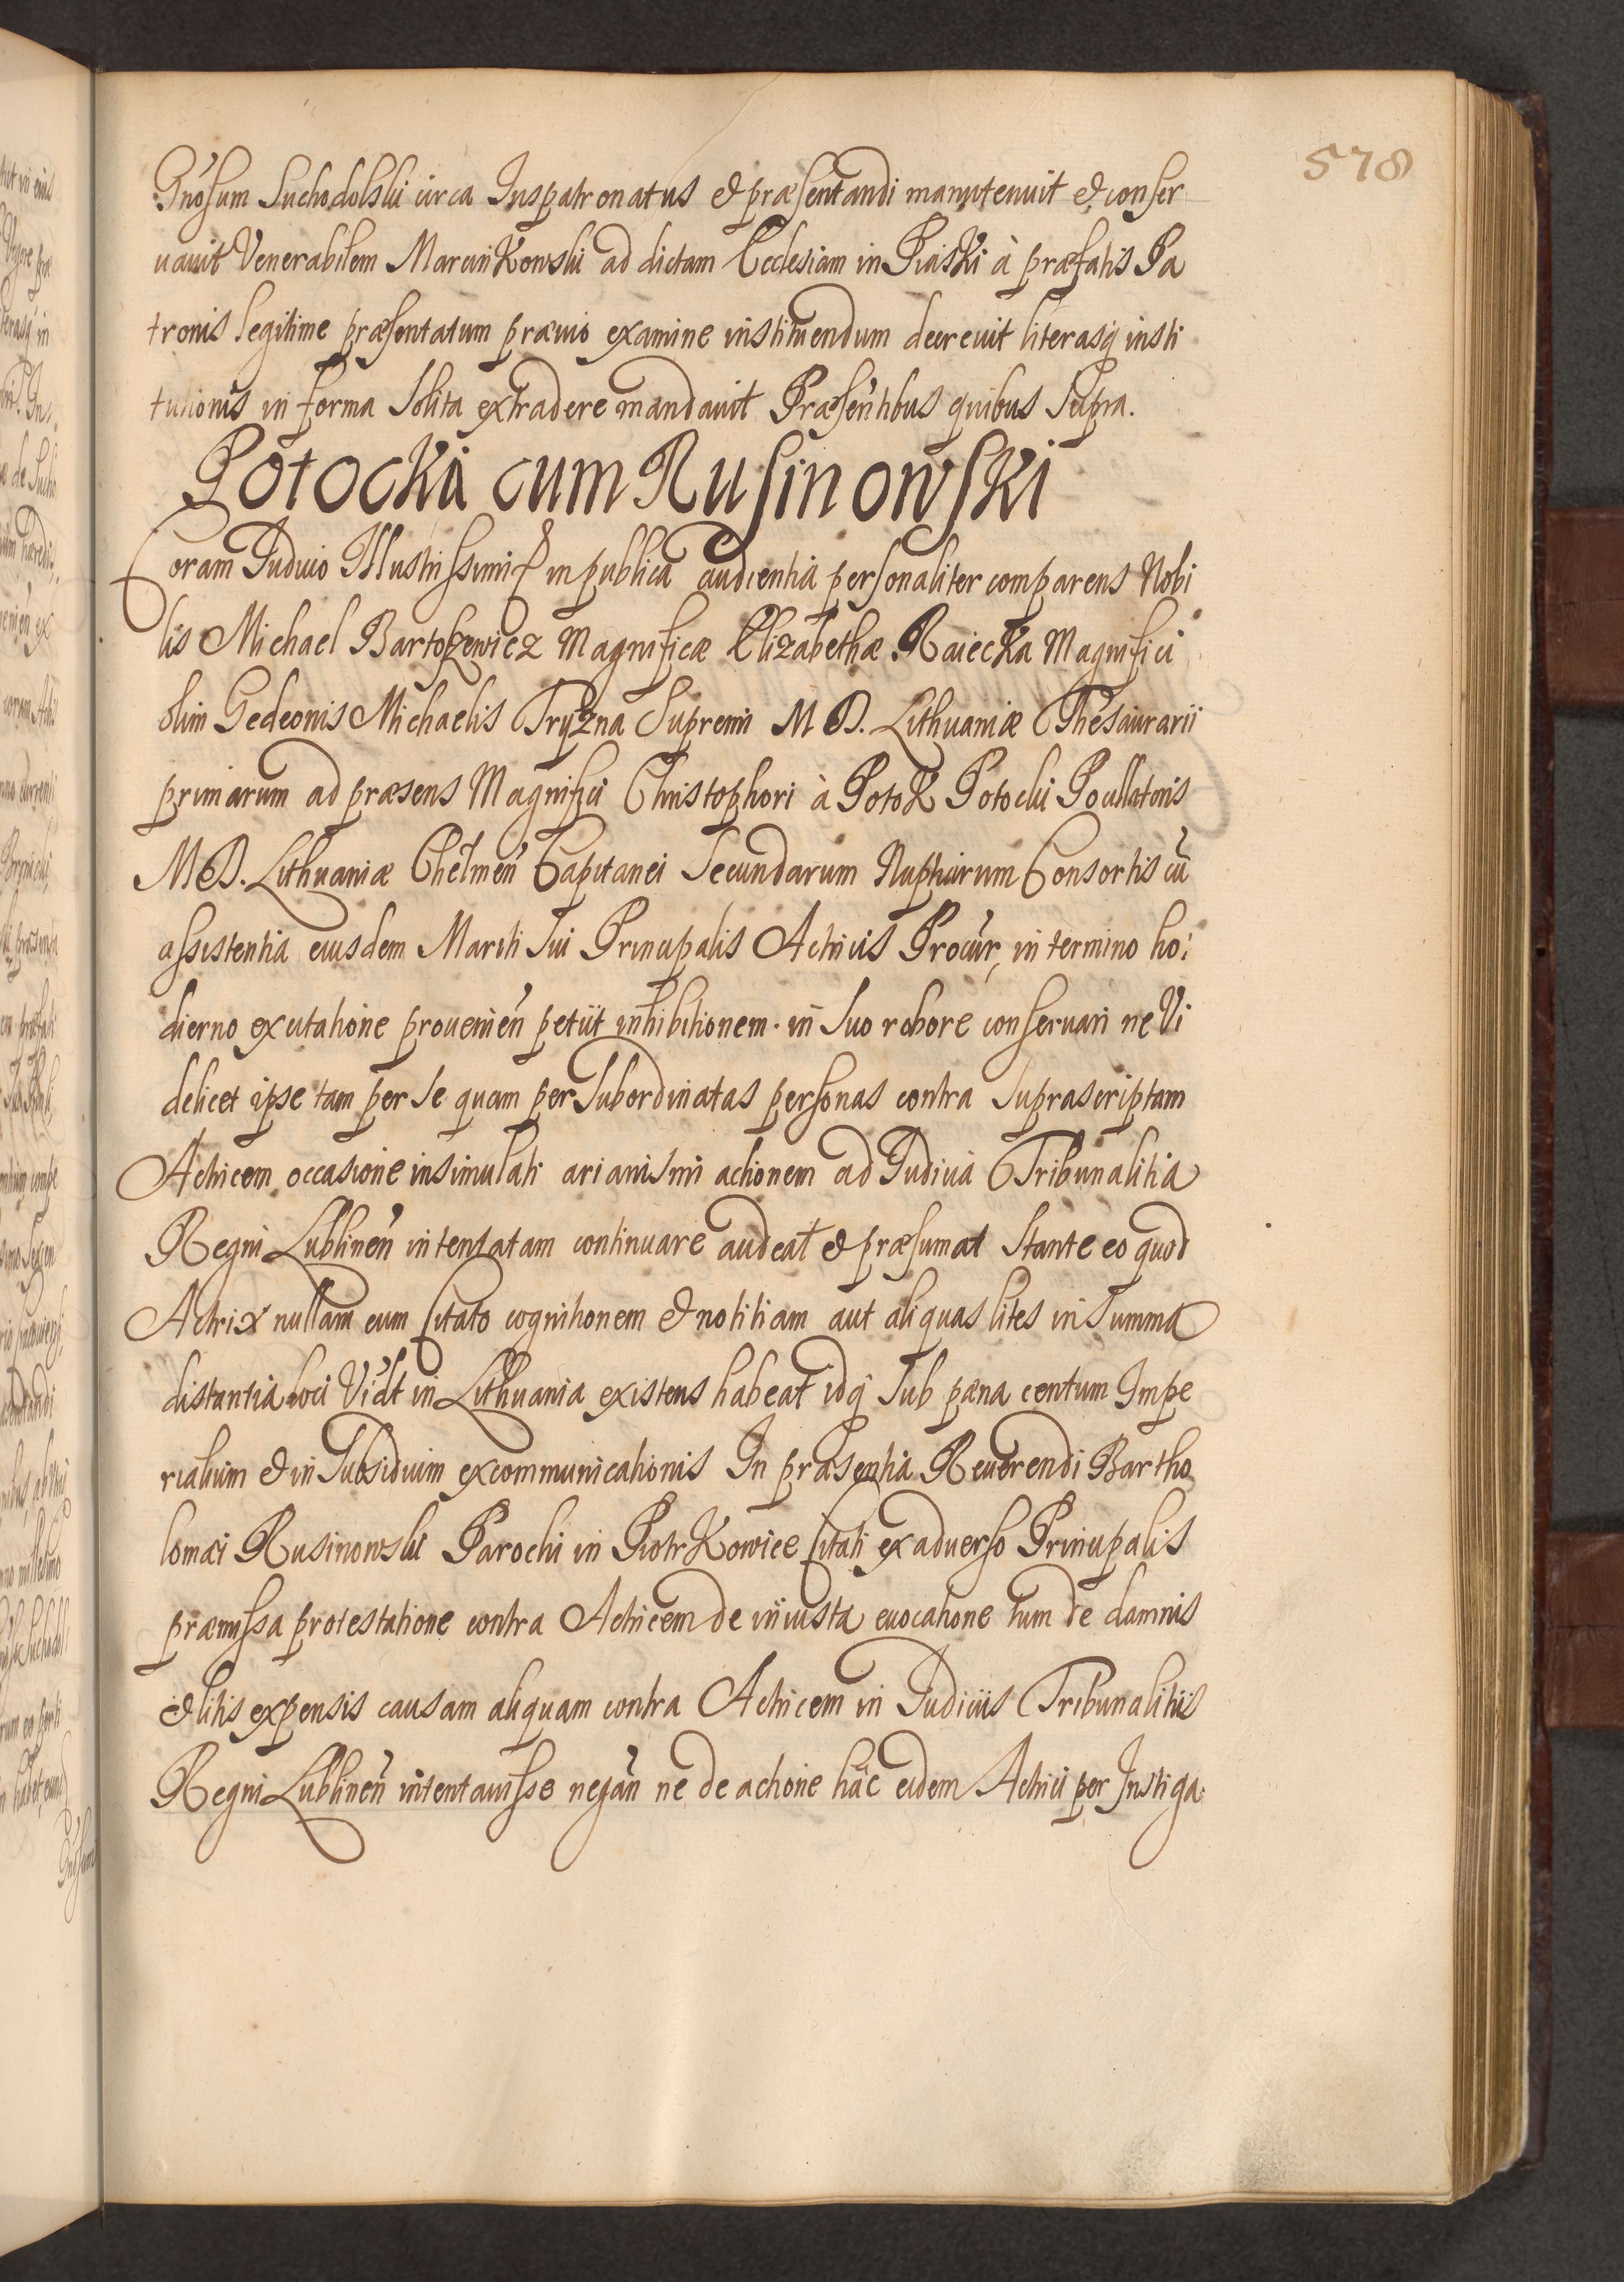 578
Gnosum Suchodolski circa Iuspatronatus & præsentandi manutenuit & conser
uauit Venerabilem Marcinkowski ad dictam Ecclesiam in Piaski à præfatis Pa
tronis legitime præsentatum præuio examine instituendum decreuit literasq insti
tutionis in forma solita extradere mandauit Præsentibus quibus Supra.
Potocka cum Rusinowski
Coram Iudicio Illustrissimi in publica audientia personaliter comparens Nobi
lis Michael Bartoszewicz Magnificæ Elizabethæ Raiecka Magnifici
olim Gedeonis Michaelis Tryzna Supremi M D. Lithuaniæ Thesaurarii
primarum ad præsens Magnifici Christophori à Potok Potocki Pocillatoris
M D. Lithuaniæ Chelmen Capitanei Secundarum Nuptiarum Consortis cũ
assistentia eiusdem Mariti Sui Principalis Actricis Procur, in termino ho:
dierno ex citatione prouenien petiit inhibitionem in Suo robore conseruari ne Vi
delicet ipse tam per Se quam per Subordinatas personas contra Suprascriptam
Actricem occasione insimulati arianismi actionem ad Iudicia Tribunalitia
Regni Lublinen intentatam continuare audeat & præsumat Stante eo quod
Actrix nullam cum Citato cognitionem & notitiam aut aliquas lites in Summa
distantia loci Vidt in Lithuania existens habeat idq Sub pæna centum Impe
rialium & in Subsidium excommunicationis In præsentia Reuerendi Bartho
lomæi Rusinowski Parochi in Piotrkowice Citati ex aduerso Principalis
præmissa protestatione contra Actricem de iniusta euocatione tum de damnis
& litis expensis causam aliquam contra Actricem in Iudiciis Tribunalitiis
Regni Lublinen intentauisse negan ne de actione hac eidem Actrici per Instiga: